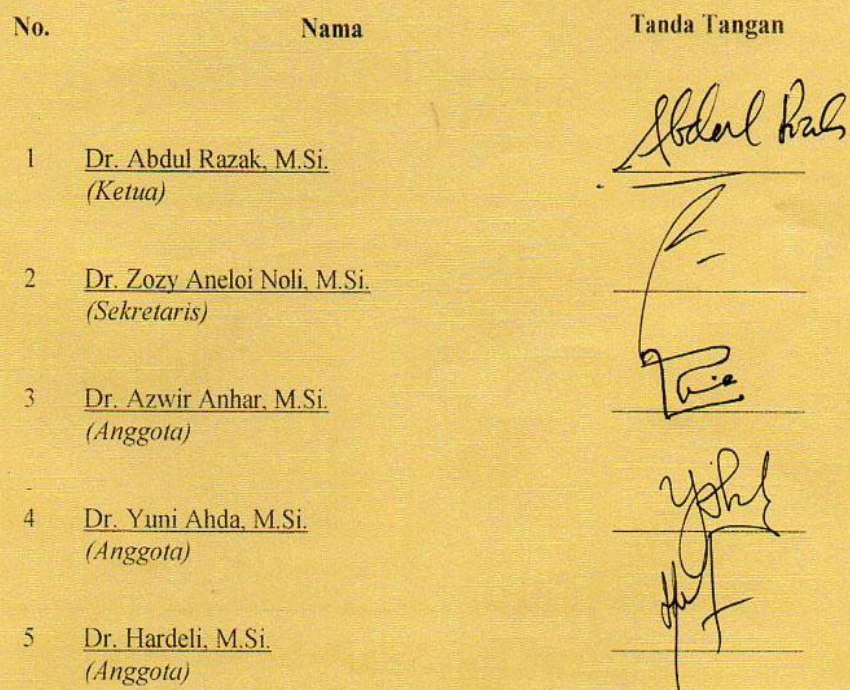 No. Nama Tanda Tangan
1 Dr. Abdul Razak, M.Si.
(Ketua)
2 Dr. Zozy Aneloi Noli, M.Si.
(Sekretaris)
3 Dr. Azwir Anhar, M.Si.
(Anggota)
4 Dr. Yuni Ahda, M.Si.
(Anggota)
5 Dr. Hardeli, M.Si.
(Anggota)